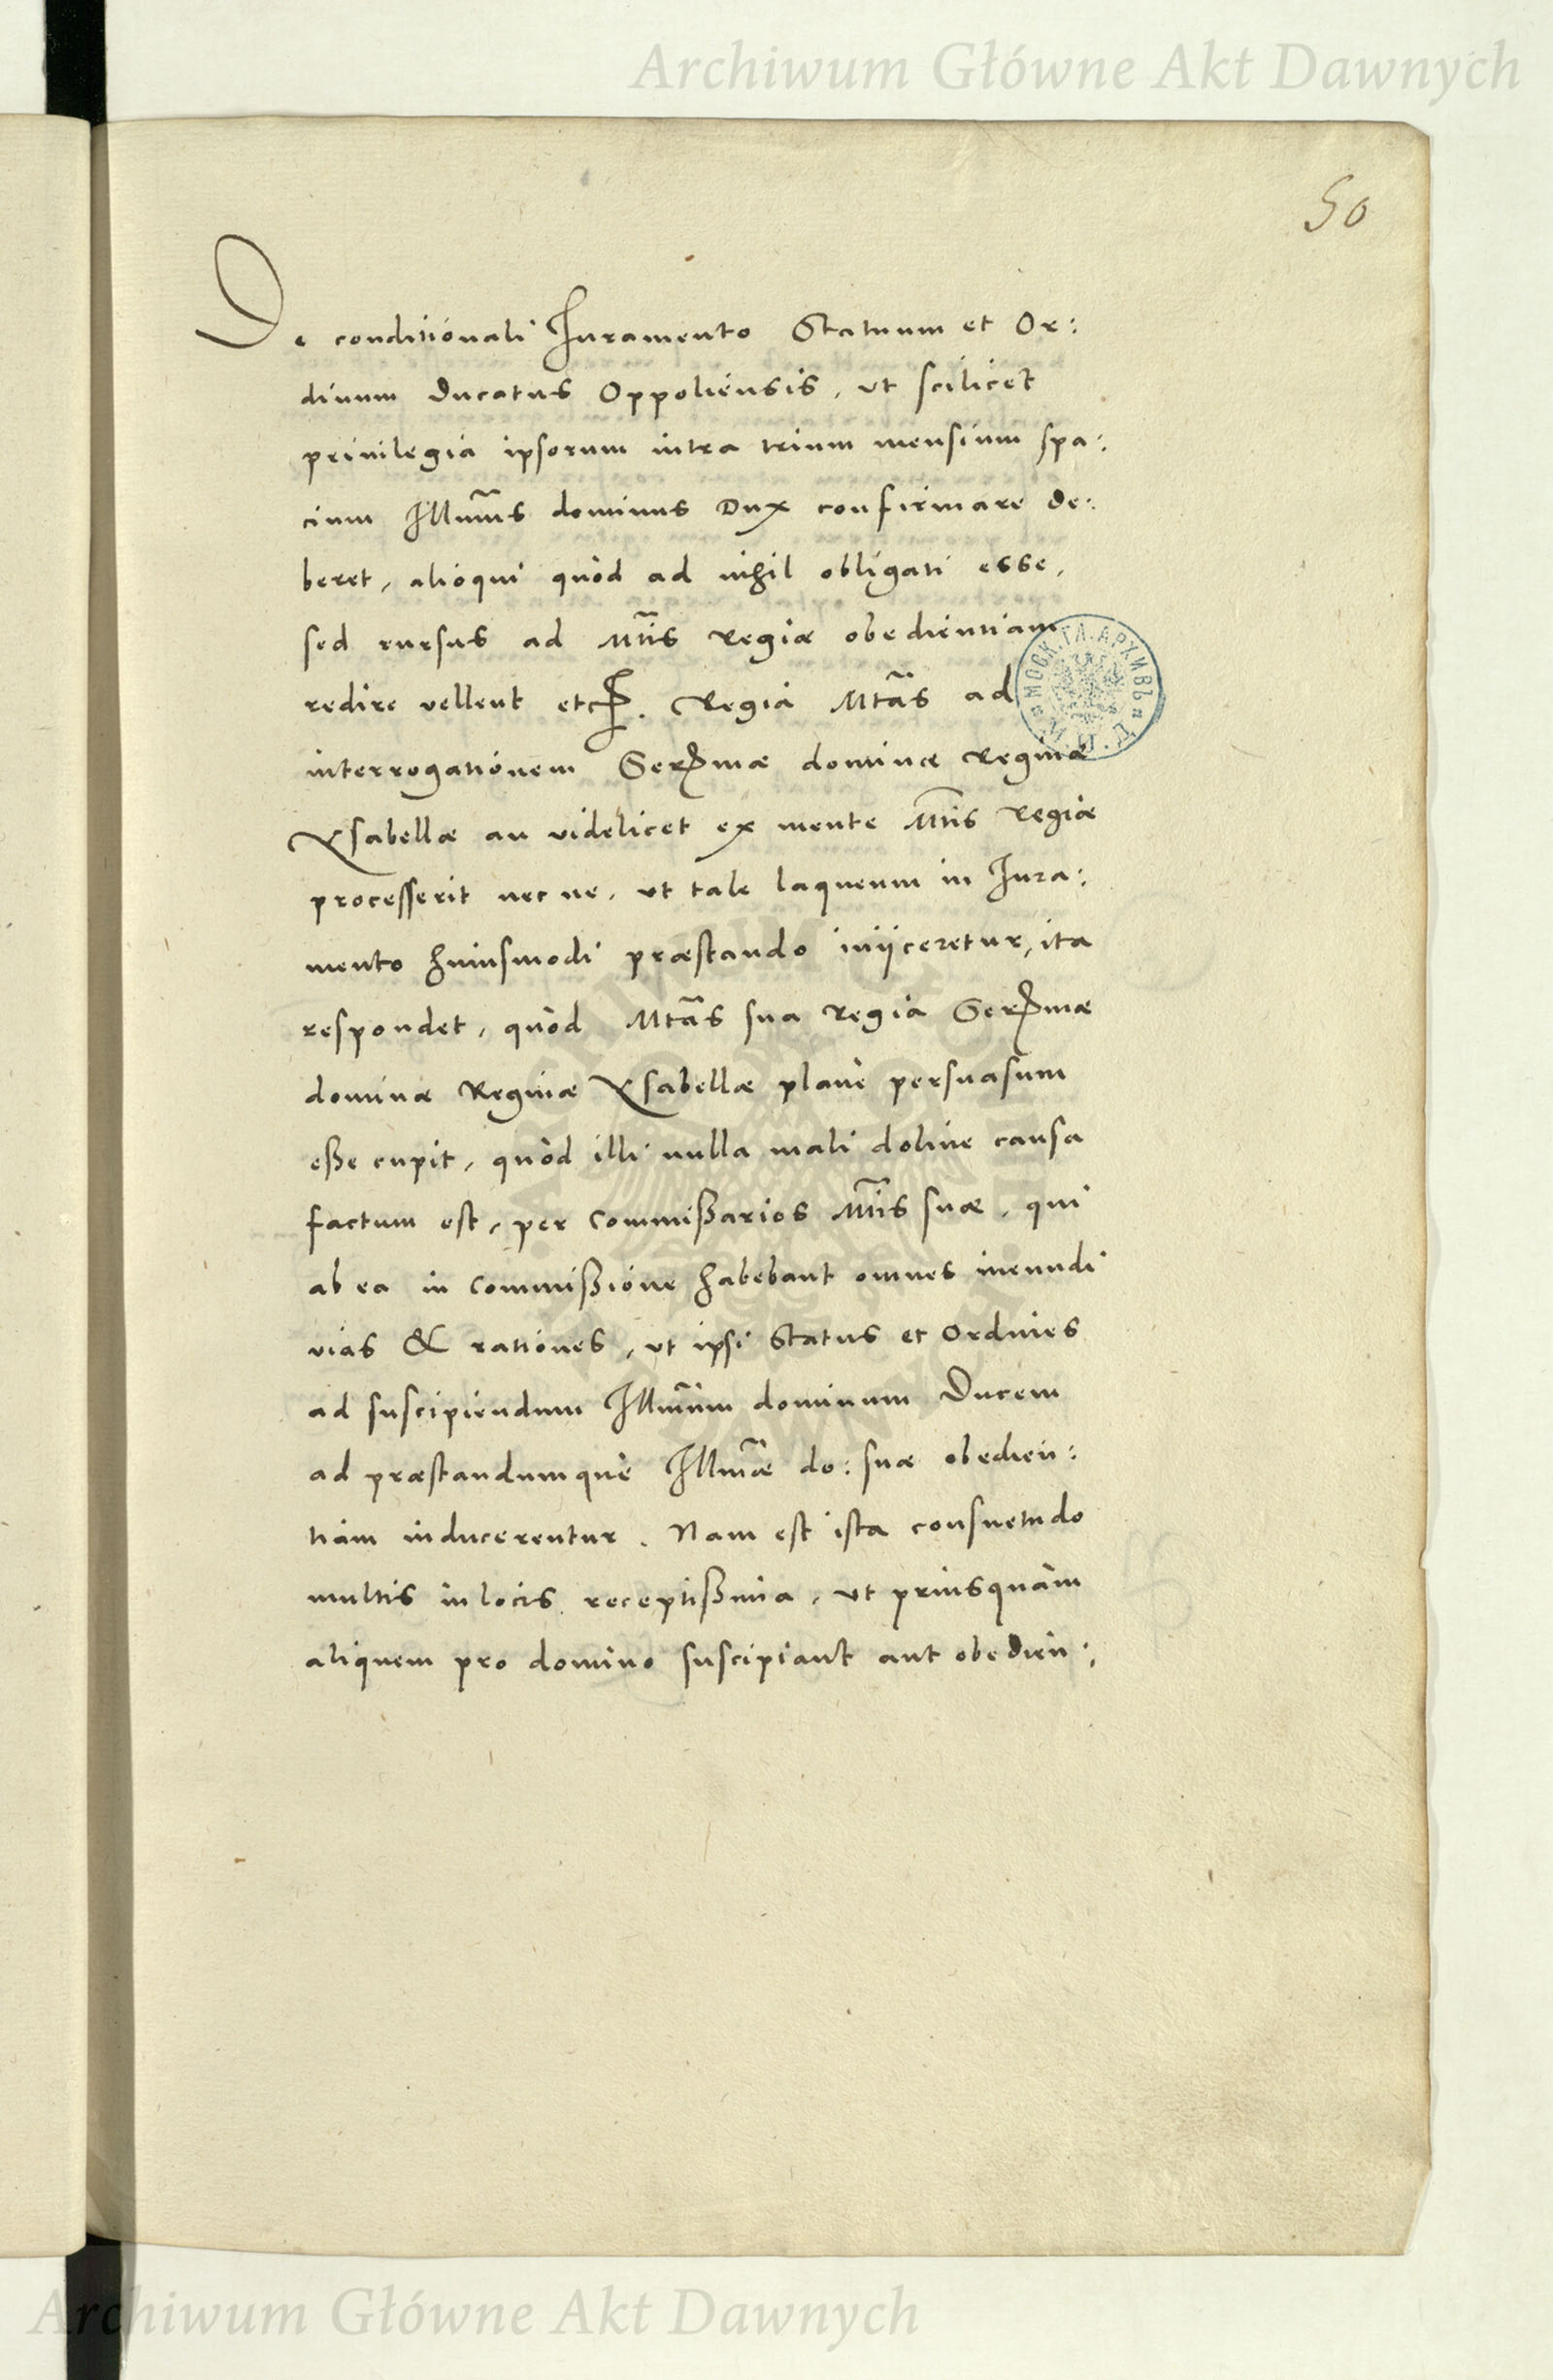 Archiwum Główne Akt Dawnych
50
De conditionali Iuramento Statuum et Or:
dinum Ducatus Oppoliensis, ut scilicet
privilegia ipsorum intra trium mensium spa:
cium Illmus dominus Dux confirmare de:
beret, alioqui quòd ad nihil obligati esse,
sed rursus ad Mtis Regiæ obedientiam
redire vellent etc. Regia Mtas ad
interrogationem Sermæ dominæ Reginæ
Ysabellæ an videlicet ex mente Mtis Regiæ
processerit nec ne, ut tale laqueum in Iura:
mento huiusmodi præstando iniiceretur, ita
respondet, quòd Mtas sua Regia Sermæ
dominæ Reginæ Ysabellæ planè persuasum
eße cupit, quòd illi nulla mali dolive causa
factum est, per Commißarios Mtis suæ, qui
ab ea in Commißione habebant omnes ineundi
vias & rationes, ut ipsi Status et Ordines
ad suscipiendum Illmum dominum Ducem
ad præstandumque Illmæ do: suæ obedien:
tiam inducerentur. Nam est ista consuetudo
multis in locis receptißima, ut priusquàm
aliquem pro domino suscipiant aut obedien:
МОСК. ГЛ. АРХИВЪ
Archiwum Główne Akt Dawnych